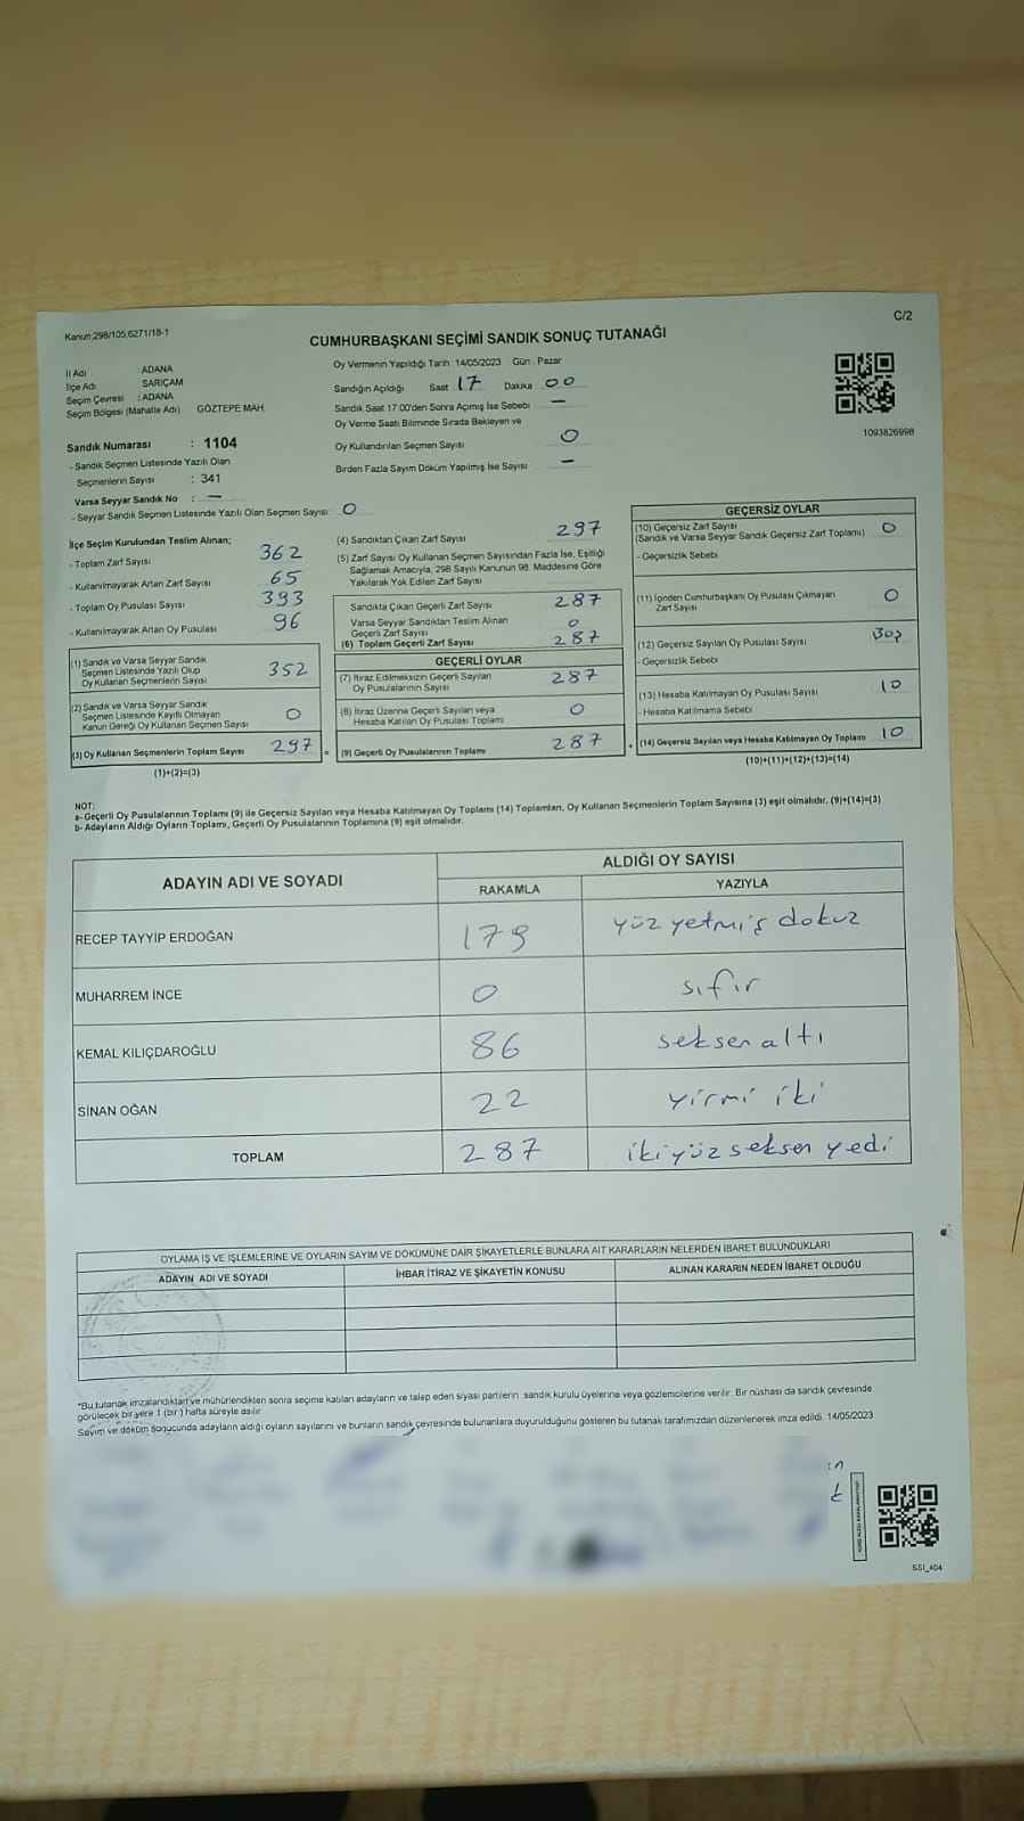 Kanun:298/105,6271/18-1
C/2
CUMHURBAŞKANI SEÇİMİ SANDIK SONUÇ TUTANAĞI
İl Adı : ADANA
İlçe Adı : SARIÇAM
Seçim Çevresi : ADANA
Seçim Bölgesi (Mahalle Adı) GÖZTEPE MAH.
Sandık Numarası : 1104
- Sandık Seçmen Listesinde Yazılı Olan
Seçmenlerin Sayısı : 341
Varsa Seyyar Sandık No : —
- Seyyar Sandık Seçmen Listesinde Yazılı Olan Seçmen Sayısı: 0
Oy Vermenin Yapıldığı Tarih 14/05/2023 Gün : Pazar
Sandığın Açıldığı Saat 17 Dakika 00
Sandık Saat 17.00'den Sonra Açılmış İse Sebebi —
Oy Verme Saati Bitiminde Sırada Bekleyen ve
Oy Kullandırılan Seçmen Sayısı 0
Birden Fazla Sayım Döküm Yapılmış İse Sayısı —
1093826998
İlçe Seçim Kurulundan Teslim Alınan;
- Toplam Zarf Sayısı 362
- Kullanılmayarak Artan Zarf Sayısı 65
- Toplam Oy Pusulası Sayısı 393
- Kullanılmayarak Artan Oy Pusulası 96
(1) Sandık ve Varsa Seyyar Sandık
Seçmen Listesinde Yazılı Olup
Oy Kullanan Seçmenlerin Sayısı 352
(2) Sandık ve Varsa Seyyar Sandık
Seçmen Listesinde Kayıtlı Olmayan
Kanun Gereği Oy Kullanan Seçmen Sayısı 0
(3) Oy Kullanan Seçmenlerin Toplam Sayısı 297
(1)+(2)=(3)
(4) Sandıktan Çıkan Zarf Sayısı 297
(5) Zarf Sayısı Oy Kullanan Seçmen Sayısından Fazla İse, Eşitliği
Sağlamak Amacıyla, 298 Sayılı Kanunun 98. Maddesine Göre
Yakılarak Yok Edilen Zarf Sayısı
Sandıkta Çıkan Geçerli Zarf Sayısı 287
Varsa Seyyar Sandıktan Teslim Alınan
Geçerli Zarf Sayısı 0
(6) Toplam Geçerli Zarf Sayısı 287
GEÇERLİ OYLAR
(7) İtiraz Edilmeksizin Geçerli Sayılan
Oy Pusulalarının Sayısı 287
(8) İtiraz Üzerine Geçerli Sayılan veya
Hesaba Katılan Oy Pusulası Toplamı 0
= (9) Geçerli Oy Pusulalarının Toplamı 287
GEÇERSİZ OYLAR
(10) Geçersiz Zarf Sayısı
(Sandık ve Varsa Seyyar Sandık Geçersiz Zarf Toplamı) 0
- Geçersizlik Sebebi
(11) İçinden Cumhurbaşkanı Oy Pusulası Çıkmayan
Zarf Sayısı 0
(12) Geçersiz Sayılan Oy Pusulası Sayısı
- Geçersizlik Sebebi
(13) Hesaba Katılmayan Oy Pusulası Sayısı 10
- Hesaba Katılmama Sebebi
+ (14) Geçersiz Sayılan veya Hesaba Katılmayan Oy Toplamı 10
(10)+(11)+(12)+(13)=(14)
NOT:
a- Geçerli Oy Pusulalarının Toplamı (9) ile Geçersiz Sayılan veya Hesaba Katılmayan Oy Toplamı (14) Toplamları, Oy Kullanan Seçmenlerin Toplam Sayısına (3) eşit olmalıdır. (9)+(14)=(3)
b- Adayların Aldığı Oyların Toplamı, Geçerli Oy Pusulalarının Toplamına (9) eşit olmalıdır.
ADAYIN ADI VE SOYADI
ALDIĞI OY SAYISI
RAKAMLA YAZIYLA
RECEP TAYYİP ERDOĞAN 179 yüz yetmiş dokuz
MUHARREM İNCE 0 sıfır
KEMAL KILIÇDAROĞLU 86 seksen altı
SİNAN OĞAN 22 yirmi iki
TOPLAM 287 ikiyüz seksen yedi
OYLAMA İŞ VE İŞLEMLERİNE VE OYLARIN SAYIM VE DÖKÜMÜNE DAİR ŞİKAYETLERLE BUNLARA AİT KARARLARIN NELERDEN İBARET BULUNDUKLARI
ADAYIN ADI VE SOYADI İHBAR İTİRAZ VE ŞİKAYETİN KONUSU ALINAN KARARIN NEDEN İBARET OLDUĞU
*Bu tutanak imzalandıktan ve mühürlendikten sonra seçime katılan adayların ve talep eden siyasi partilerin sandık kurulu üyelerine veya gözlemcilerine verilir. Bir nüshası da sandık çevresinde
görülecek bir yere 1 (bir) hafta süreyle asılır.
Sayım ve döküm sonucunda adayların aldığı oyların sayılarını ve bunların sandık çevresinde bulunanlara duyurulduğunu gösteren bu tutanak tarafımızdan düzenlenerek imza edildi. 14/05/2023
SSI_404